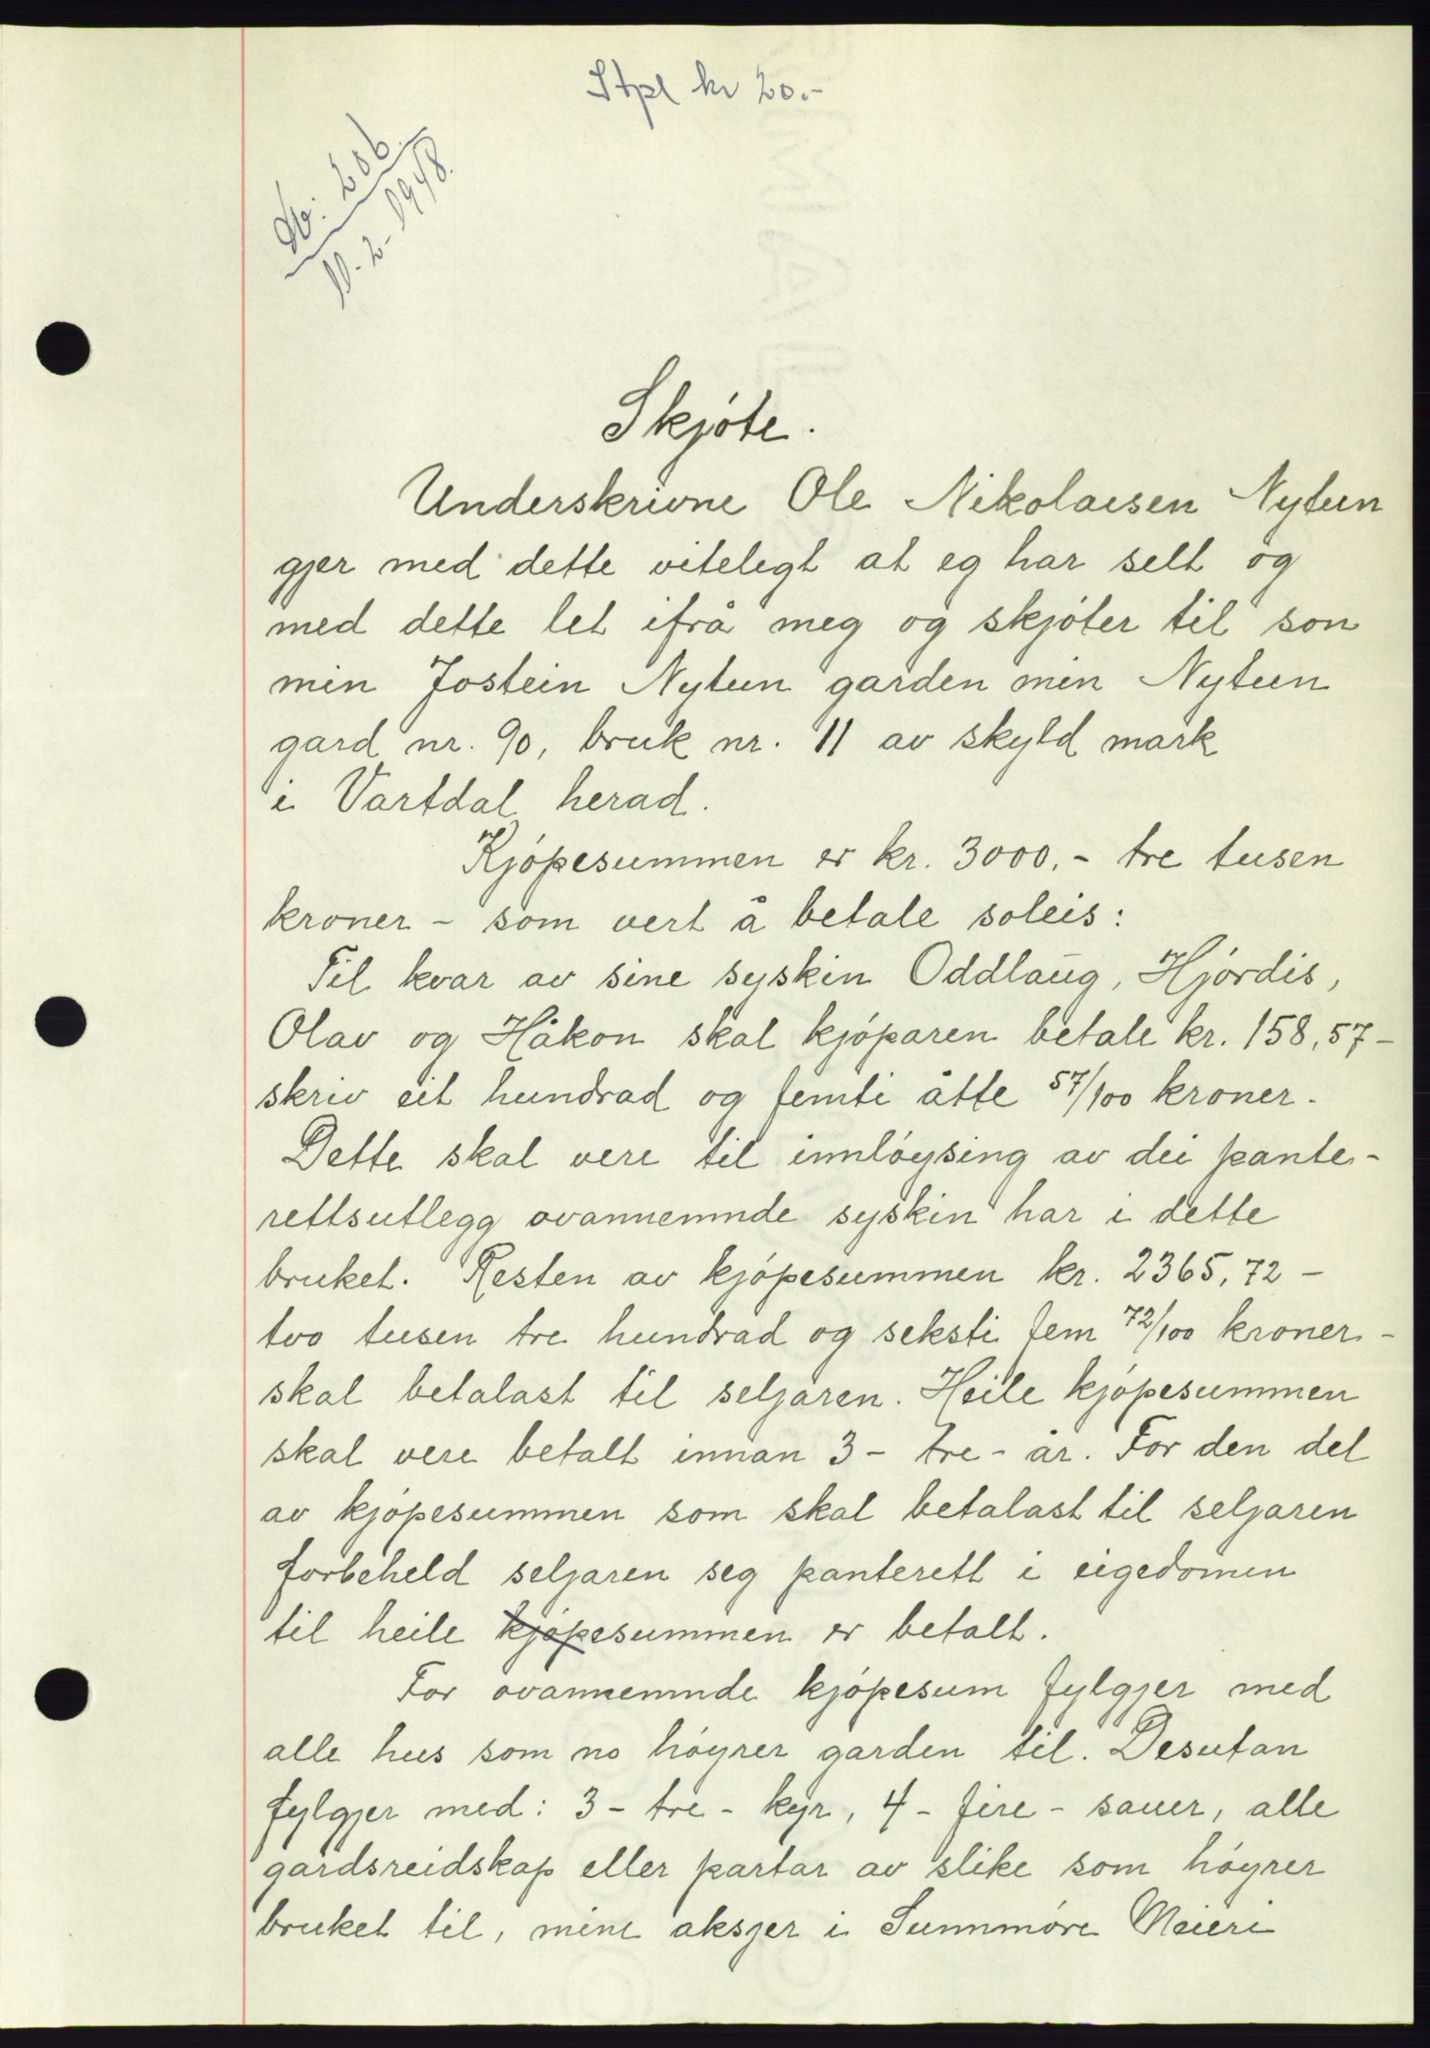 Stpl kr 20.-
Db: 206.
10-2-1948.
Skjóte.
Underskrivne Ole Nikolaisen Nytun
gjer med dette vitelegt at eg har selt og
med dette let ifrå meg og skjóter til son
min Jostein Nytun garden min Nytun
gard nr. 90, bruk nr. 11 av skyld mark
i Vartdal herad.
Kjópesummen er kr. 3000.- tre tusen
kroner - som vert å betale soleis:
Til kvar av sine syskin Oddlaug, Hjórdis,
Olav og Håkon skal kjóparen betale kr. 158,57-
skriv eit hundrad og femti åtte 57/100 kroner.
Dette skal vere til innlóysing av dei pante-
rettsutlegg ovannemnde syskin har i dette
bruket. Resten av kjópesummen kr. 2365,72 -
tvo tusen tre hundrad og seksti fem 72/100 kroner -
skal betalast til seljaren. Heile kjópesummen
skal vere betalt innan 3 - tre - år. For den del
av kjópesummen som skal betalast til seljaren
forbeheld seljaren seg panterett i eigedomen
til heile kjópesummen er betalt.
For ovannemnde kjópesum fylgjer med
alle hus som no hóyrer garden til. Desutan
fylgjer med: 3 - tre - kyr, 4 - fire - sauer, alle
gardsreidskap eller partar av slike som hóyrer
bruket til, mine aksjer i Sunnmóre Meieri